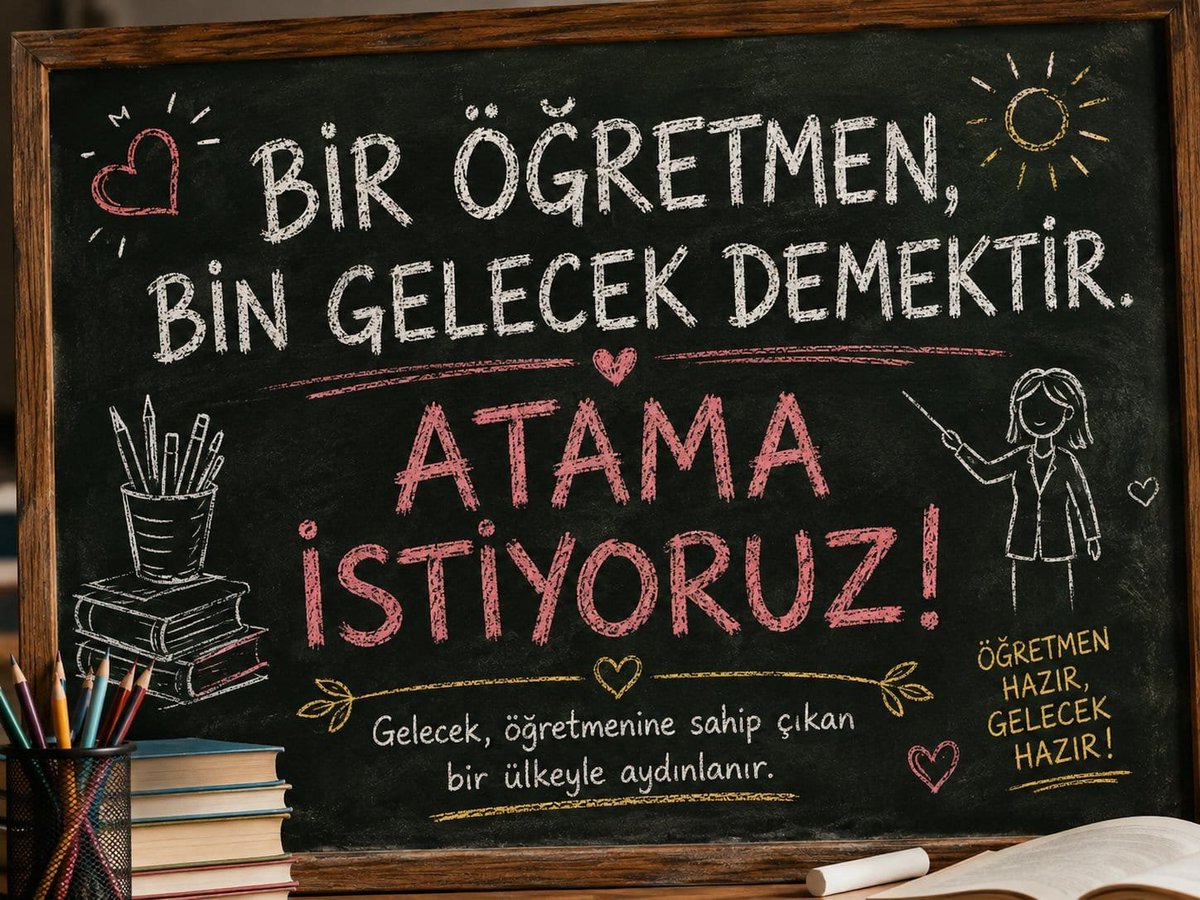 BİR ÖĞRETMEN,
BİN GELECEK DEMEKTİR.
ATAMA
İSTİYORUZ!
Gelecek, öğretmenine sahip çıkan
bir ülkeyle aydınlanır.
ÖĞRETMEN
HAZIR,
GELECEK
HAZIR!